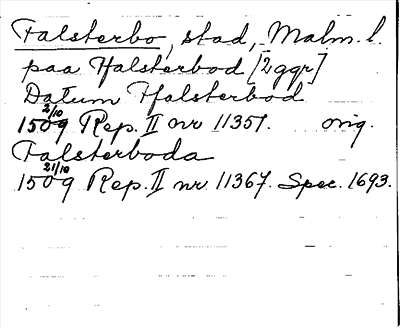 Falsterbo, stad, Malm. l.
paa Ffalsterbod [2ggr]
Datum Ffalsterbod
1509 2/10 Rep. II nr 11351. orig.
Falsterboda
1509 21/10 Rep. II nr 11367. Spec. 1693.